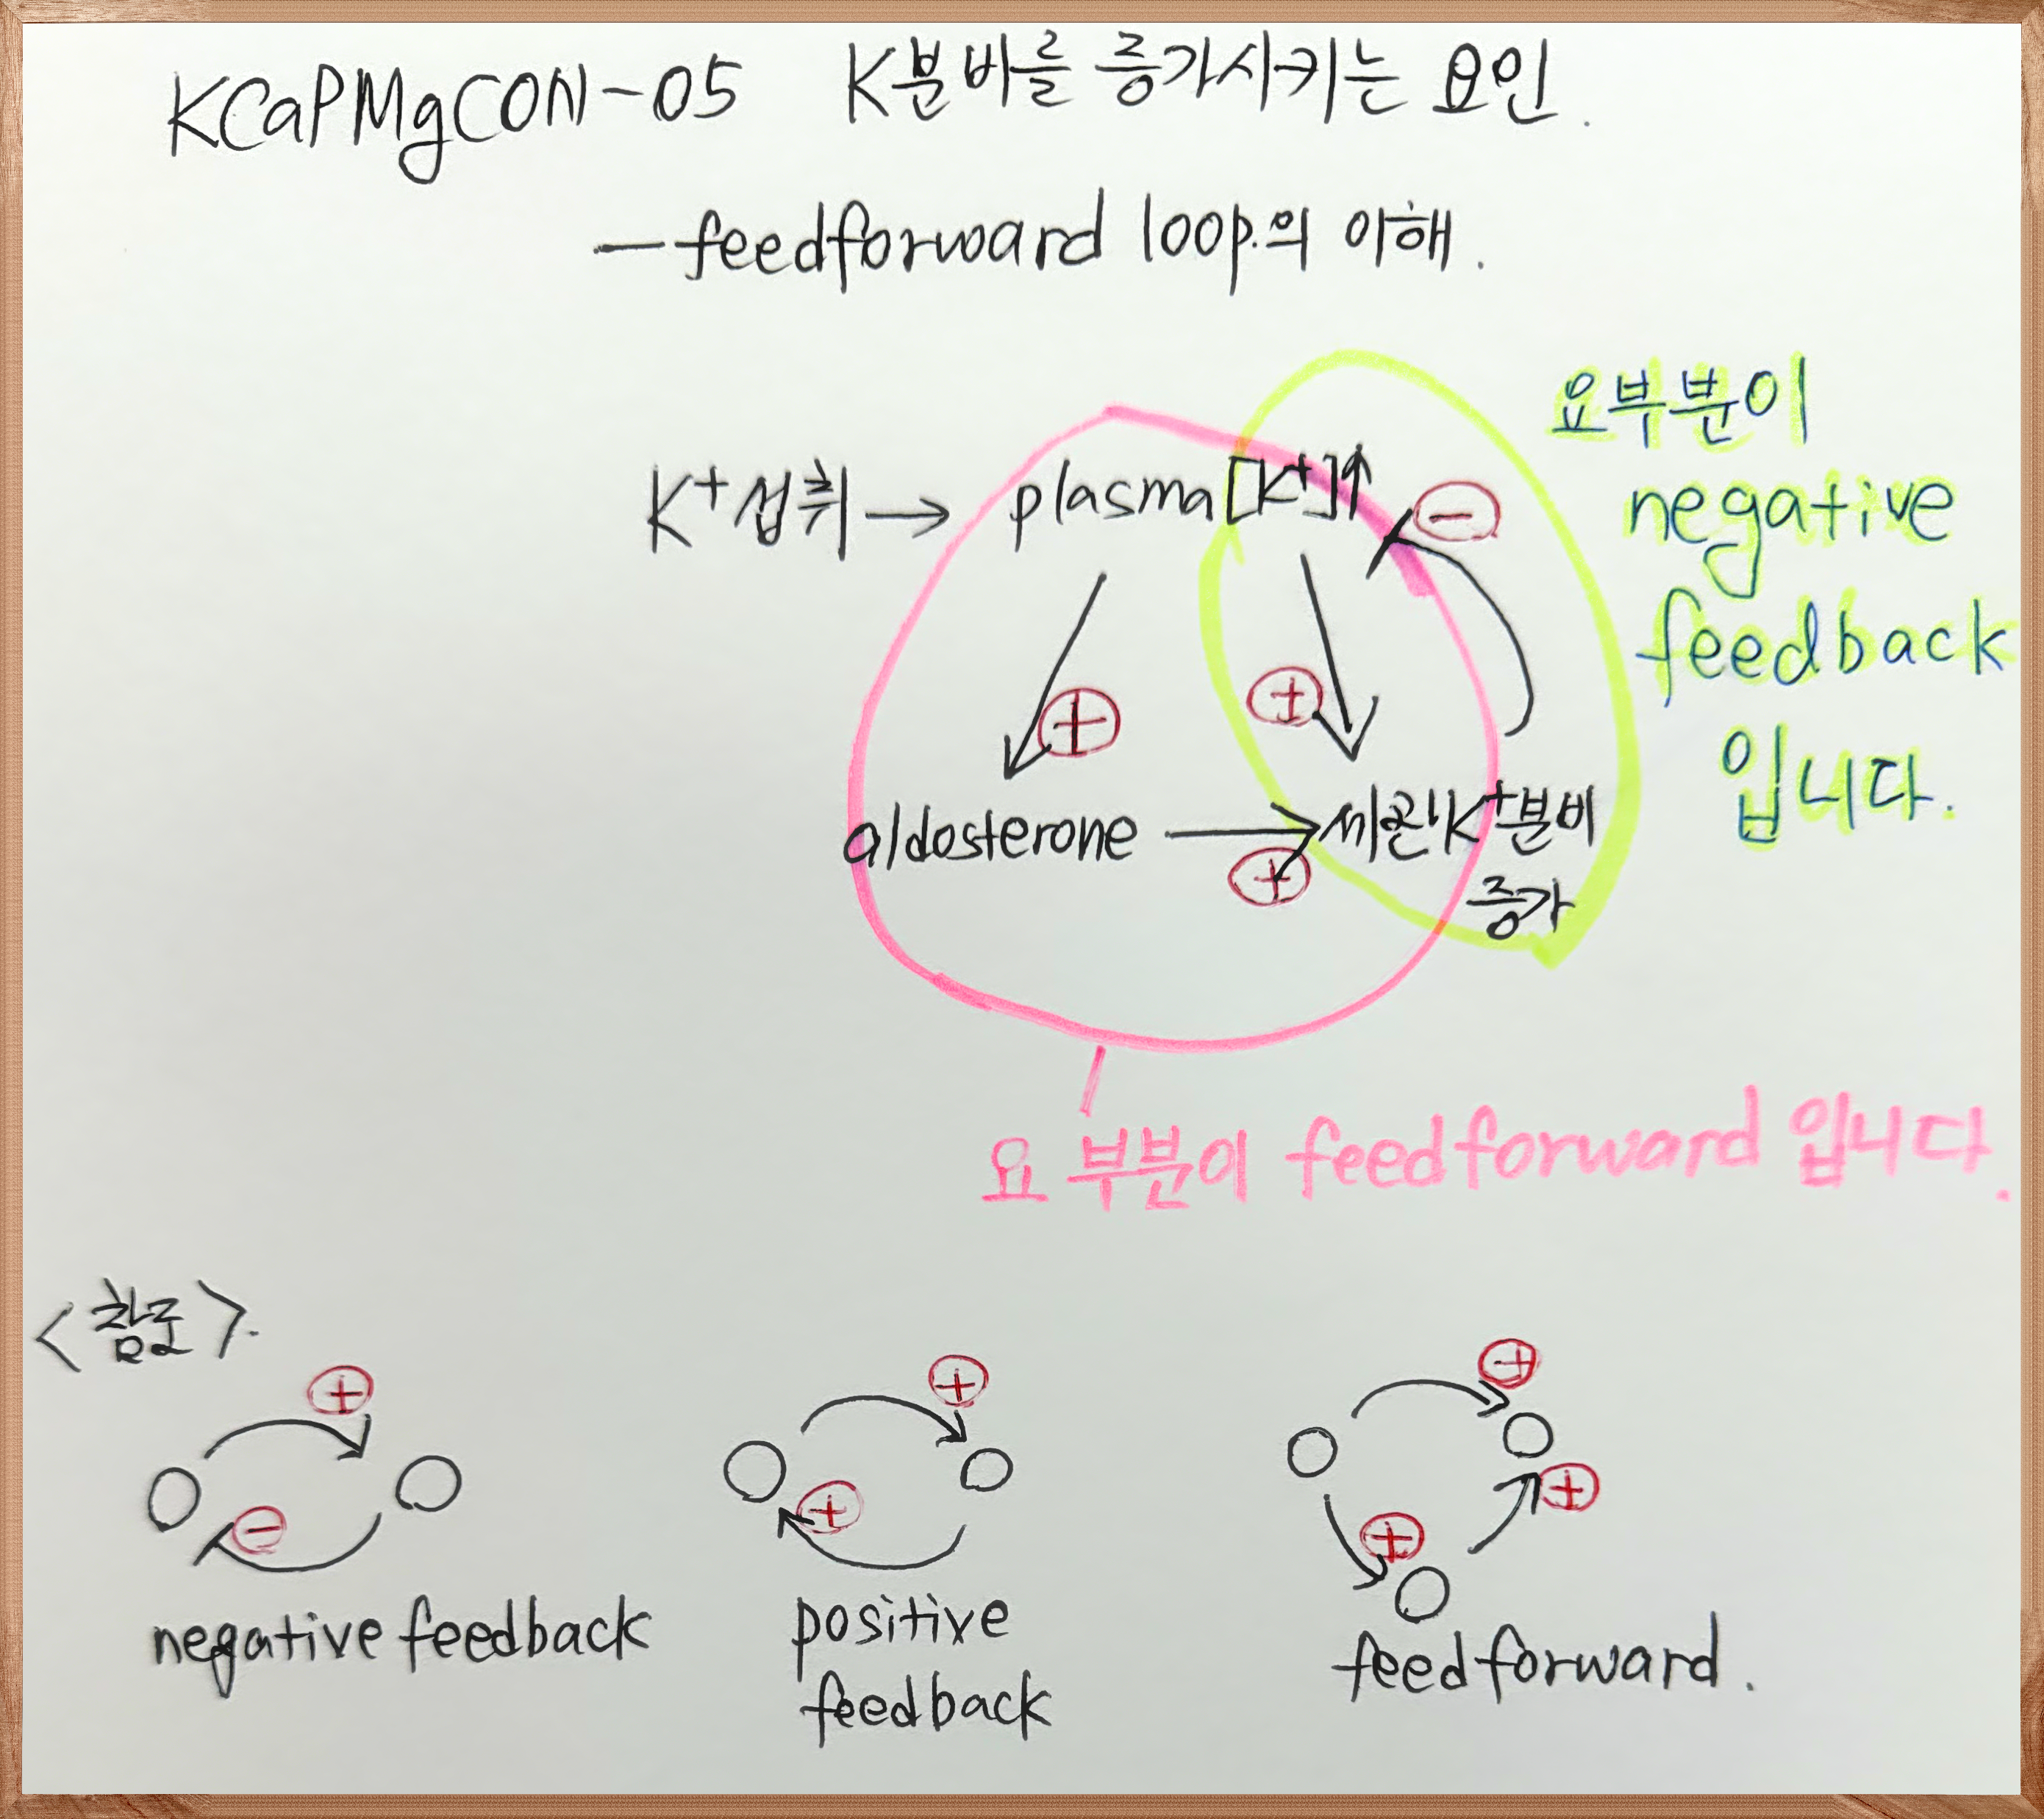 KCaPMgCON-05 K분비를 증가시키는 요인.
—feedforward loop의 이해.
K+섭취→ plasma[K+]↑
−
+
+
aldosterone → 세관K+분비
증가
+
요부분이
negative
feedback
입니다.
요 부분이 feedforward 입니다.
<참조>.
+
−
negative feedback
+
+
positive
feedback
+
+
+
feedforward.